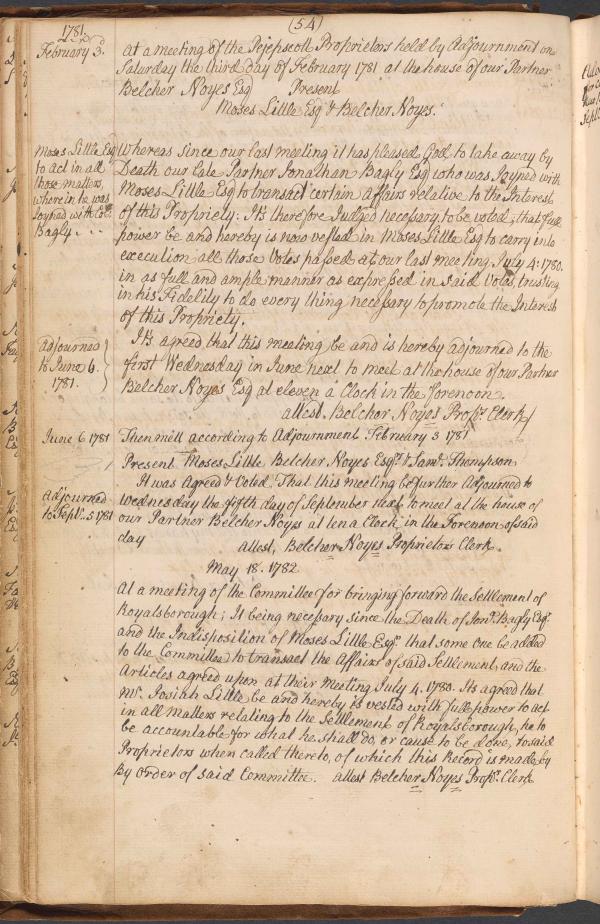 (54)
1781
February 3.
At a meeting of the Pejepscott Proprietors held by Adjournment on
Saturday the third day of February 1781 at the house of our Partner
Belcher Noyes Esq Present
Moses Little Esq & Belcher Noyes.
Moses Little Esq
to act in all
those matters,
wherein he was
Joyned with Col.
Bagly...
Whereas since our last meeting it has pleased God to take away by
Death our late Partner Jonathan Bagly Esq who was Joyned with
Moses Little Esq to transact certain Affairs relative to the Interest
of this Propriety. It's therefore Judged necessary to be voted, that full
power be and hereby is now vested in Moses Little Esq to carry into
execution all those Votes passed at our last meeting July 4: 1780.
in as full and ample manner as expressed in said Votes, trusting
in his Fidelity to do every thing necessary to promote the Interest
of this Propriety.
adjourned
to June 6.
1781.
It's agreed that this meeting be and is hereby adjourned to the
first Wednesday in June next to meet at the house of our Partner
Belcher Noyes Esq at eleven a Clock in the forenoon.
attest. Belcher Noyes Prop.rs Clerk
June 6 1781
Then mett according to Adjournment February 3 1781
Present Moses Little Belcher Noyes Esq.rs & Sam.l Thompson
It was Agreed & Voted. That this meeting be further Adjourned to
adjourned
to Sept.r 5 1781
Wednesday the fifth day of September next to meet at the house of
our Partner Belcher Noyes at ten a Clock in the Forenoon of said
day attest, Belcher Noyes Proprietors Clerk.
May 18. 1782
At a meeting of the Committee for bringing forward the Settlement of
Royalsborough; It being necessary since the Death of Jon.a Bagly Esq.r
and the Indisposition of Moses Little Esq.r that some one be added
to the Committee to transact the Affairs of said Settlement, and the
Articles agreed upon at their Meeting July 4. 1780. Its agreed that
M.r Josiah Little be and hereby is vested with full power to act
in all Matters relating to the Settlement of Royalsborough, he to
be accountable for what he shall do, or cause to be done, to said
Proprietors when called thereto, of which this Record is made by
By Order of said Committee. attest Belcher Noyes Prop.rs Clerk